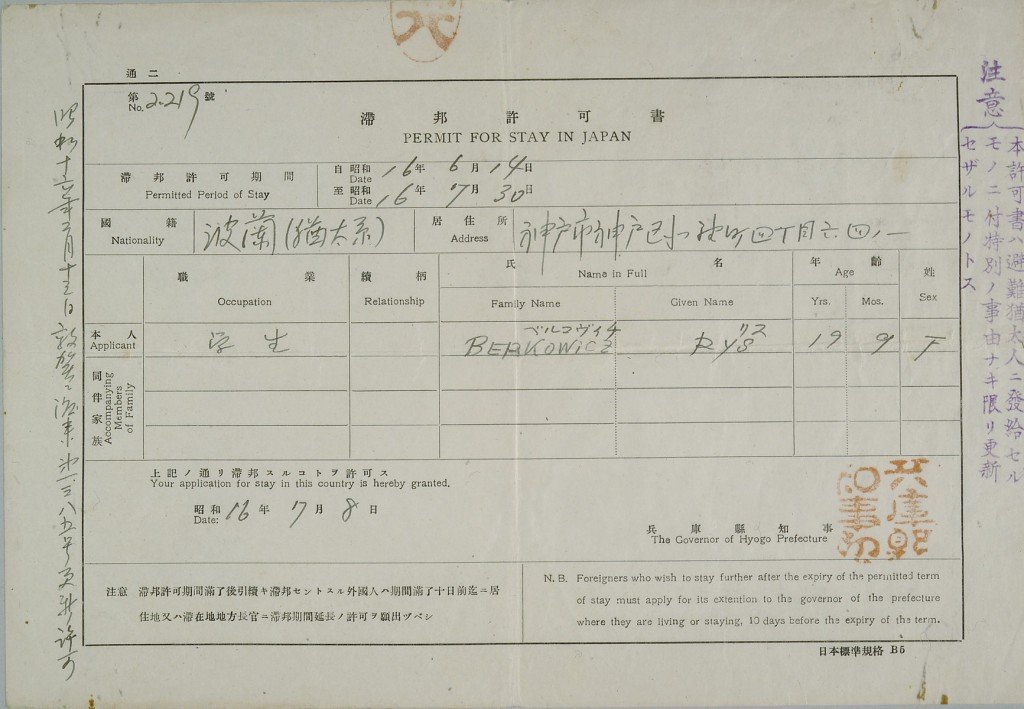 通二
第 2219 號
No.
滯邦許可書
PERMIT FOR STAY IN JAPAN
滯邦許可期間
Permitted Period of Stay
自 昭和 16年 6月 14日
Date
至 昭和 16年 7月 30日
Date
國籍
Nationality
波蘭(猶太系)
居住所
Address
神戸市神戸区 四丁目六四ノ一
職業
Occupation
續柄
Relationship
氏名
Name in Full
Family Name
Given Name
年齡
Age
Yrs.
Mos.
姓
Sex
本人
Applicant
学生
ベルコヴィチ
BERKOWICZ
リス
RYS
19
9
F
同伴家族
Accompanying
Members
of Family
上記ノ通リ滯邦スルコトヲ許可ス
Your application for stay in this country is hereby granted.
昭和 16年 7月 8日
Date:
兵庫縣知事
The Governor of Hyogo Prefecture
注意 滯邦許可期間滿了後引續キ滯邦セントスル外國人ハ期間滿了十日前迄ニ居
住地又ハ滯在地地方長官ニ滯邦期間延長ノ許可ヲ願出ヅベシ
N. B. Foreigners who wish to stay further after the expiry of the permitted term
of stay must apply for its extention to the governor of the prefecture
where they are living or staying, 10 days before the expiry of the term.
日本標準規格 B5
注意
本許可書ハ避難猶太人ニ發給セル
モノニ付特別ノ事由ナキ限リ更新
セザルモノトス
昭和十六年 月十 日敦賀 八五号 許可